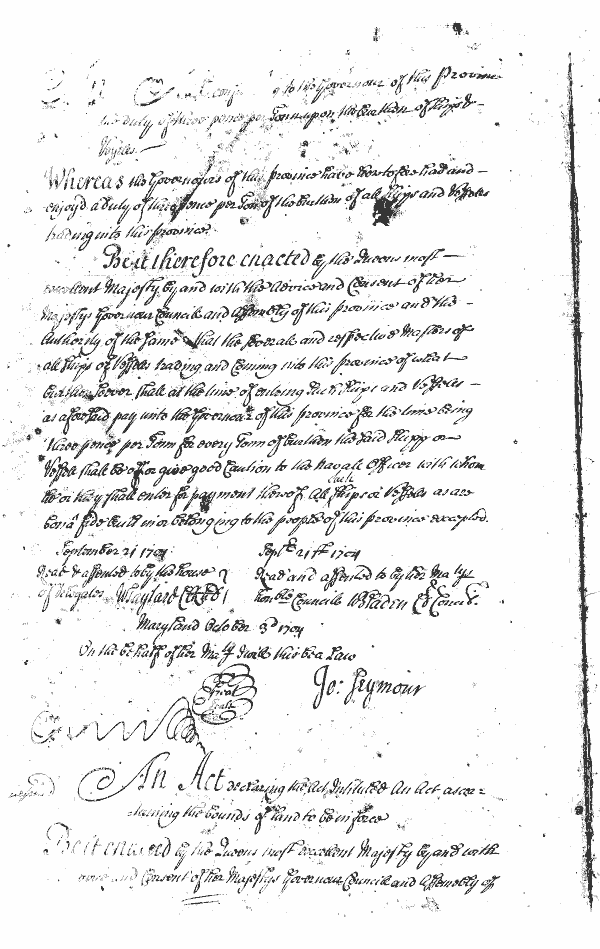 to the Governour of this Province
the duty of three pence per Tonn upon the burthen of Shipps &
Vessels.—
Whereas the Governours of this Province have heretofore had and—
enjoyd a duty of three pence per Ton of the burthen of all Shipps and Vessells
trading into this province.
Be it therefore enacted by the Queens most—
excellent Majesty by and with the Advice and Consent of her
Majestys Governour Councill and Assembly of this Province and the—
Authority of the same that the severall and respective Masters of
all Ships or Vessells trading and Coming into this Province of what—
burthen soever shall at the time of entering such Ships and Vessells—
as aforesaid pay unto the Governour of this province for the time being
three pence per Tonn for every Tonn of burthen the said Shipp or
Vessell shall be of or give good Caution to the Navall Officer with whom
he or they shall enter for payment thereof all such Ships or Vessells as are
bona fide built in or belonging to the people of this province excepted.
September 21 1704 Septbr 21th 1704
Read & assented to by the house Read and assented to by her Matys
of Delegates W Taylard Cl Honble Councill W Bladen Cl Concil.
Maryland October 3d 1704
On the behalf of her Maty I will this be a Law
Great Seale Jo: Seymour
An Act declaring the Act Intituled An Act ascer=
taining the bounds of land to be in force
Be it enacted by the Queens most excellent Majesty by and with
and Consent of her Majestys Governour Councill and Assembly of